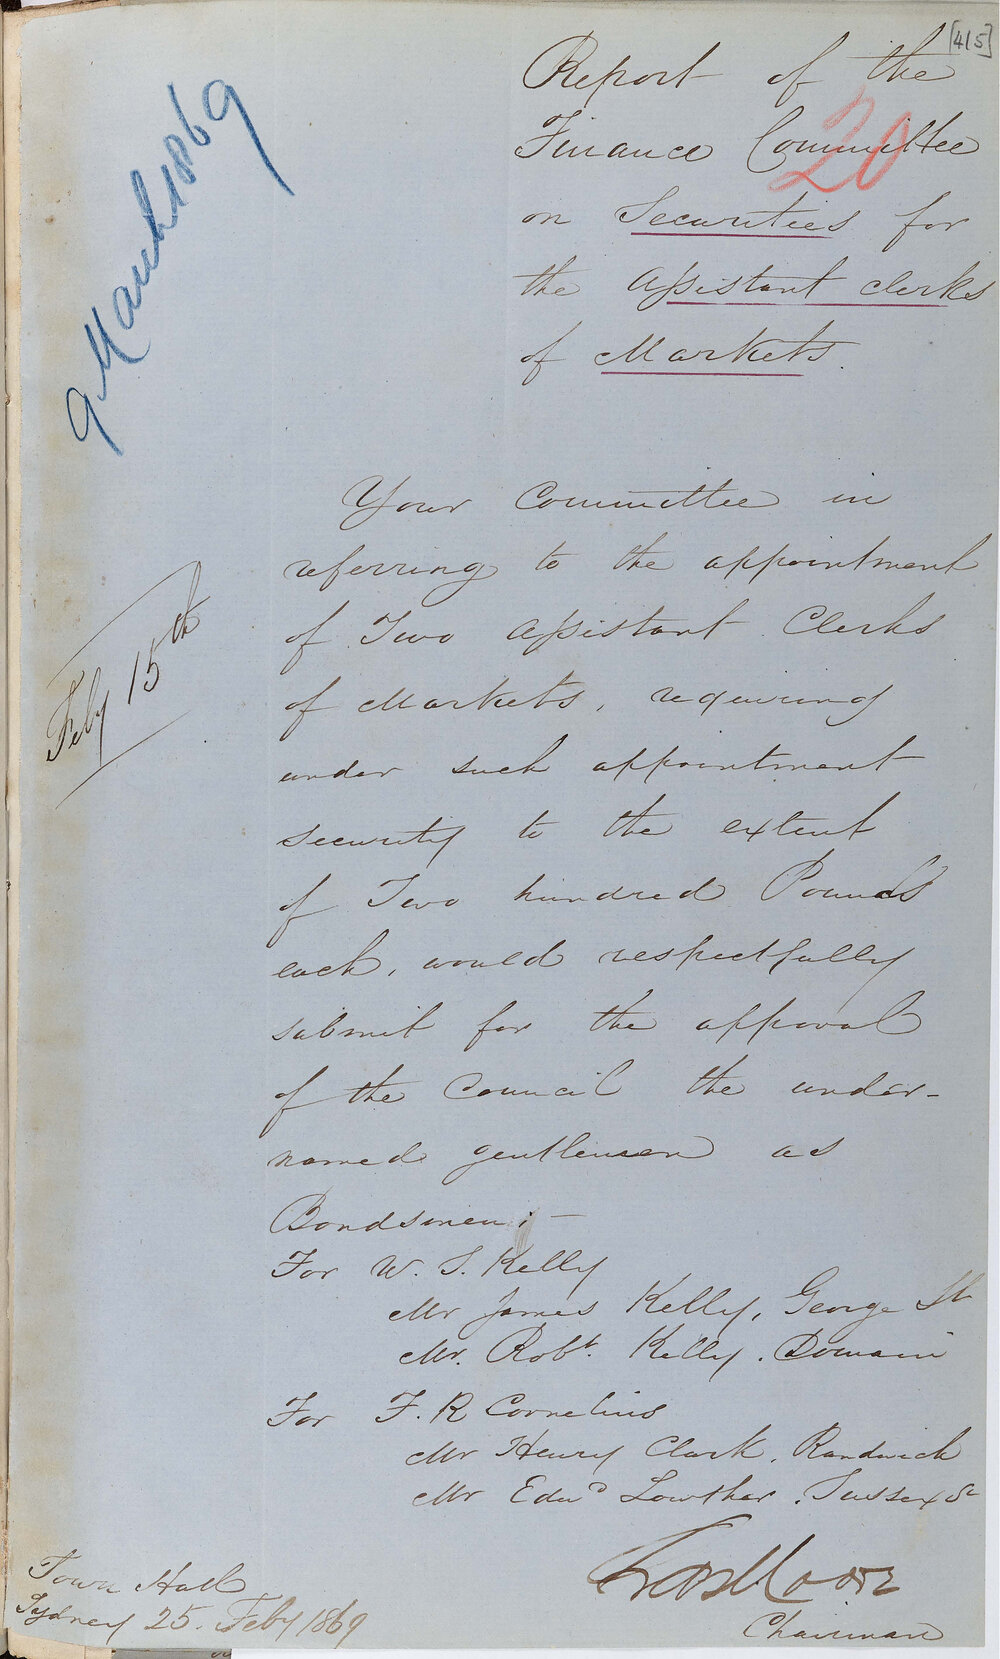 [415]
Report of the
Finance Committee
20
on Securities for
the Assistant Clerks
of Markets.
9 March 1869
Your Committee in
referring to the appointment
of Two Assistant Clerks
of Markets, requiring
Feby 15th
under such appointment
security to the extent
of Two hundred Pounds
each, would respectfully
submit for the approval
of the Council the under-
named gentlemen as
Bondsmen: —
For W. S. Kelly
Mr James Kelly, George St
Mr. Robt. Kelly. Domain
For F. R Cornelius
Mr Henry Clark, Randwick
Mr Edwd Lowther, Sussex St
Moore
Chairman
Town Hall
Sydney 25. Feby 1869